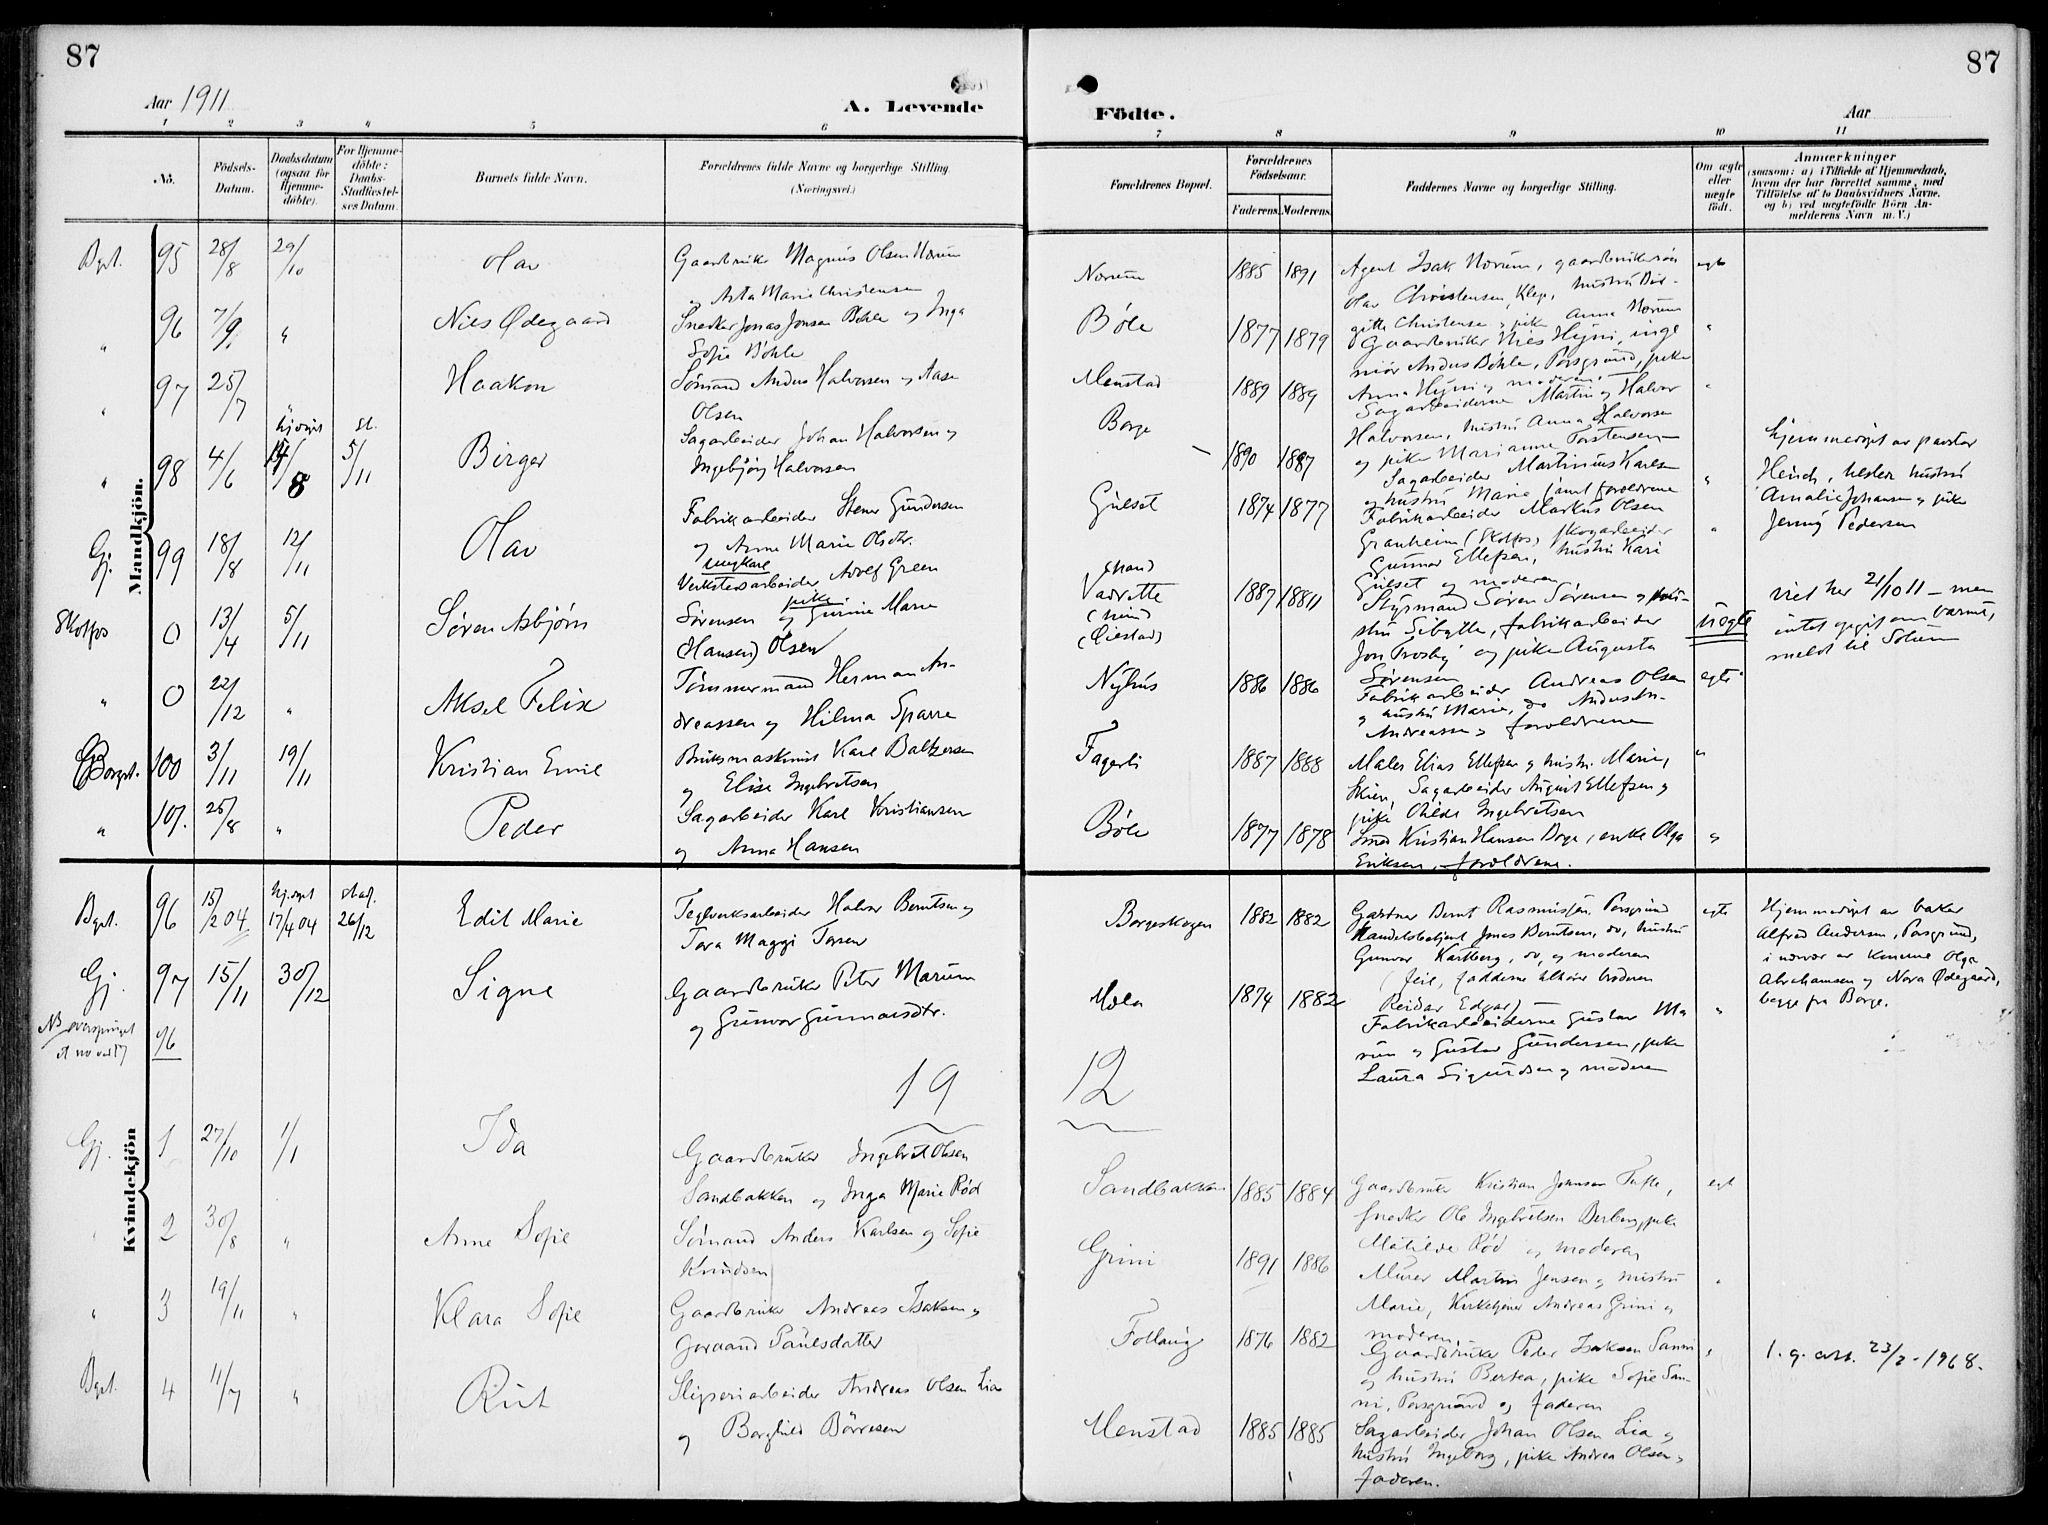 87
87
Aar 1911
A. Levende
Födte.
Aar
1 2 3 4 5 6 7 8 9 10 11
No.
Födsels-Datum.
Daabsdatum (ogsaa for Hjemmedöbte).
For Hjemmedöbte: Daabs-Stadfæstelses Datum.
Barnets fulde Navn.
Forældrenes fulde Navne og borgerlige Stilling. (Næringsvei.)
Forældrenes Bopæl.
Forældrenes Födselsaar.
Faderens. Moderens.
Faddernes Navne og borgerlige Stilling.
Om ægte eller uægte födt.
Anmærkninger
(saasom: a) i Tilfælde af Hjemmedaab,
hvem der har forrettet samme, med
Tilföielse af to Daabsvidners Navne,
og b) ved uægtefödte Börn Anmelderens Navn m. V.)
Mandkjön.
Bgst. 95 28/8 29/10 Olav
Gaardbruker Magnus Olsen Norum
og Asta Marie Christensen
Norum 1885 1891
Agent Isak Norum, gaardbrukersøn
Olav Christensen, Klep, hustru Bir-
gitte Christensen og pike Anna Norum
egte
" 96 7/9 " Niels Ødegaard
Snedker Jonas Jonsen Bøhle og Inga
Sofie Bøhle
Bøle 1877 1879
Gaardbruker Nies Hejni, inge
niør Anders Bøhle, Porsgrund, pike
Anna Hejni og moderen.
"
" 97 25/7 " Haakon
Sømand Anders Halvorsen og Aase
Olsen
Menstad 1889 1889
Sagarbeiderne Martin og Halvor
Halvorsen, hustru Anna Halvorsen
og pike Marianne Torstensen
"
hjdøpt st.
" 98 4/6 14/8 5/11 Birger
Sagarbeider Johan Halvorsen og
Ingebjørg Halvorsen
Borge 1890 1887
Sagarbeider Martinius Karlsen
og hustru Marie samt forældrene
"
hjemmedøpt av pastor
Heuch, Hesler hustru
Amalie Johansen og pike
Jenny Pedersen
Gj. 99 18/8 12/11 Olav
Fabrikarbeider Stener Gundersen
og Anne Marie Olsdtr.
Gulset 1874 1877
Fabrikarbeider Markus Olsen
Granheim (Skotfos), skogarbeider
Gunnar Ellefsen, hustru Kari
Gulset og moderen
"
Skotfos 0 13/4 5/11 Søren Asbjørn
ungkarl
Verkstedsarbeider Adolf Green
Sørensen og pike Gurine Marie
(Hansen) Olsen
Vadrette
(Øiestad)
1887 1881
Styrmand Søren Sørensen og hu-
stru Sibylle, fabrikarbeider
Jon Trosby og pike Augusta
Sørensen
uegte
viet her 21/10 11 – men
intet opgit om barnet,
meldt til Solum
" 0 22/12 " Aksel Felix
Tømmermand Herman An-
dreassen og Hilma Sparre
Nyhus 1886 1886
Fabrikarbeider Andreas Olsen
og hustru Marie, do Anders An-
Andreassen og forældrene
egte
Borgest. 100 3/11 19/11 Kristian Emil
Bruksmaskinist Karl Baltzersen
og Elise Ingebretsen
Fagerli 1887 1888
Maler Elias Ellefsen og hustru Marie,
Skien, Sagarbeider August Ellefsen og
pike Hilda Ingebretsen
"
" 101. 25/8 " Peder
Sagarbeider Karl Kristiansen
og Anna Hansen
Bøle 1877 1878
Smed Kristian Hansen Borge, enke Olga
Eriksen, forældrene.
"
Kvindekjön
hj.døpt stadf.
Bgst. 96 15/2 04 17/4 04 26/12 Edit Marie
Teglverksarbeider Halvor Berntsen og
Tora Maggi Torsen
Borgeskogen 1882 1882
Gartner Bernt Rasmussen, Porsgrund
Handelsbetjent Jonas Berntsen, do, hustru
Gunvor Kartberg, do, og moderen
(feil, fadderne tilhører broderen
Reidar Edgar)
egte
Hjemmedøpt av baker
Alfred Andersen, Porsgrund,
i nærvær av konerne Olga
Abrahamsen og Nora Ødegaard,
begge fra Borge.
Gj. 97 15/11 30/12 Signe
Gaardbruker Peter Marum
og Gunvor Gunnarsdtr.
Hola 1874 1882
Fabrikarbeiderne Gustav Ma
rum og Gustav Gundersen, pike
Laura Sigurdsen og moderen
"
NB oversprunget
et no ved 17
96
19
12
Gj. 1 27/10 1/1 Ida
Gaardbruker Ingebret Olsen
Sandbakken og Inga Marie Rød
Sandbakken 1885 1884
Gaardbruker Kristian Johnsen Tufte,
snedker Ole Ingebretsen Berberg, pike
Matilde Rød og moderen
egt
" 2 30/8 " Anne Sofie
Sømand Anders Karlsen og Sofie
Knudsen
Grini 1891 1886
Murer Martin Jensen og hustru
Marie, Kirketjener Andreas Grini og
moderen.
"
" 3 19/11 " Klara Sofie
Gaardbruker Andreas Isaksen og
Goraand Paulsdatter
Follaug 1876 1882
Gaardbruker Peder Isaksen Sanni
og hustru Bertea, pike Sofie San-
ni, Porsgrund og faderen
"
1. g. att. 23/2-1968.
Bgst. 4 11/7 " Rut
Sliperiarbeider Andreas Olsen Lia
og Borghild Børresen
Menstad 1885 1885
Sagarbeider Johan Olsen Lia og
hustru Ingeborg, pike Andrea Olsen og
faderen.